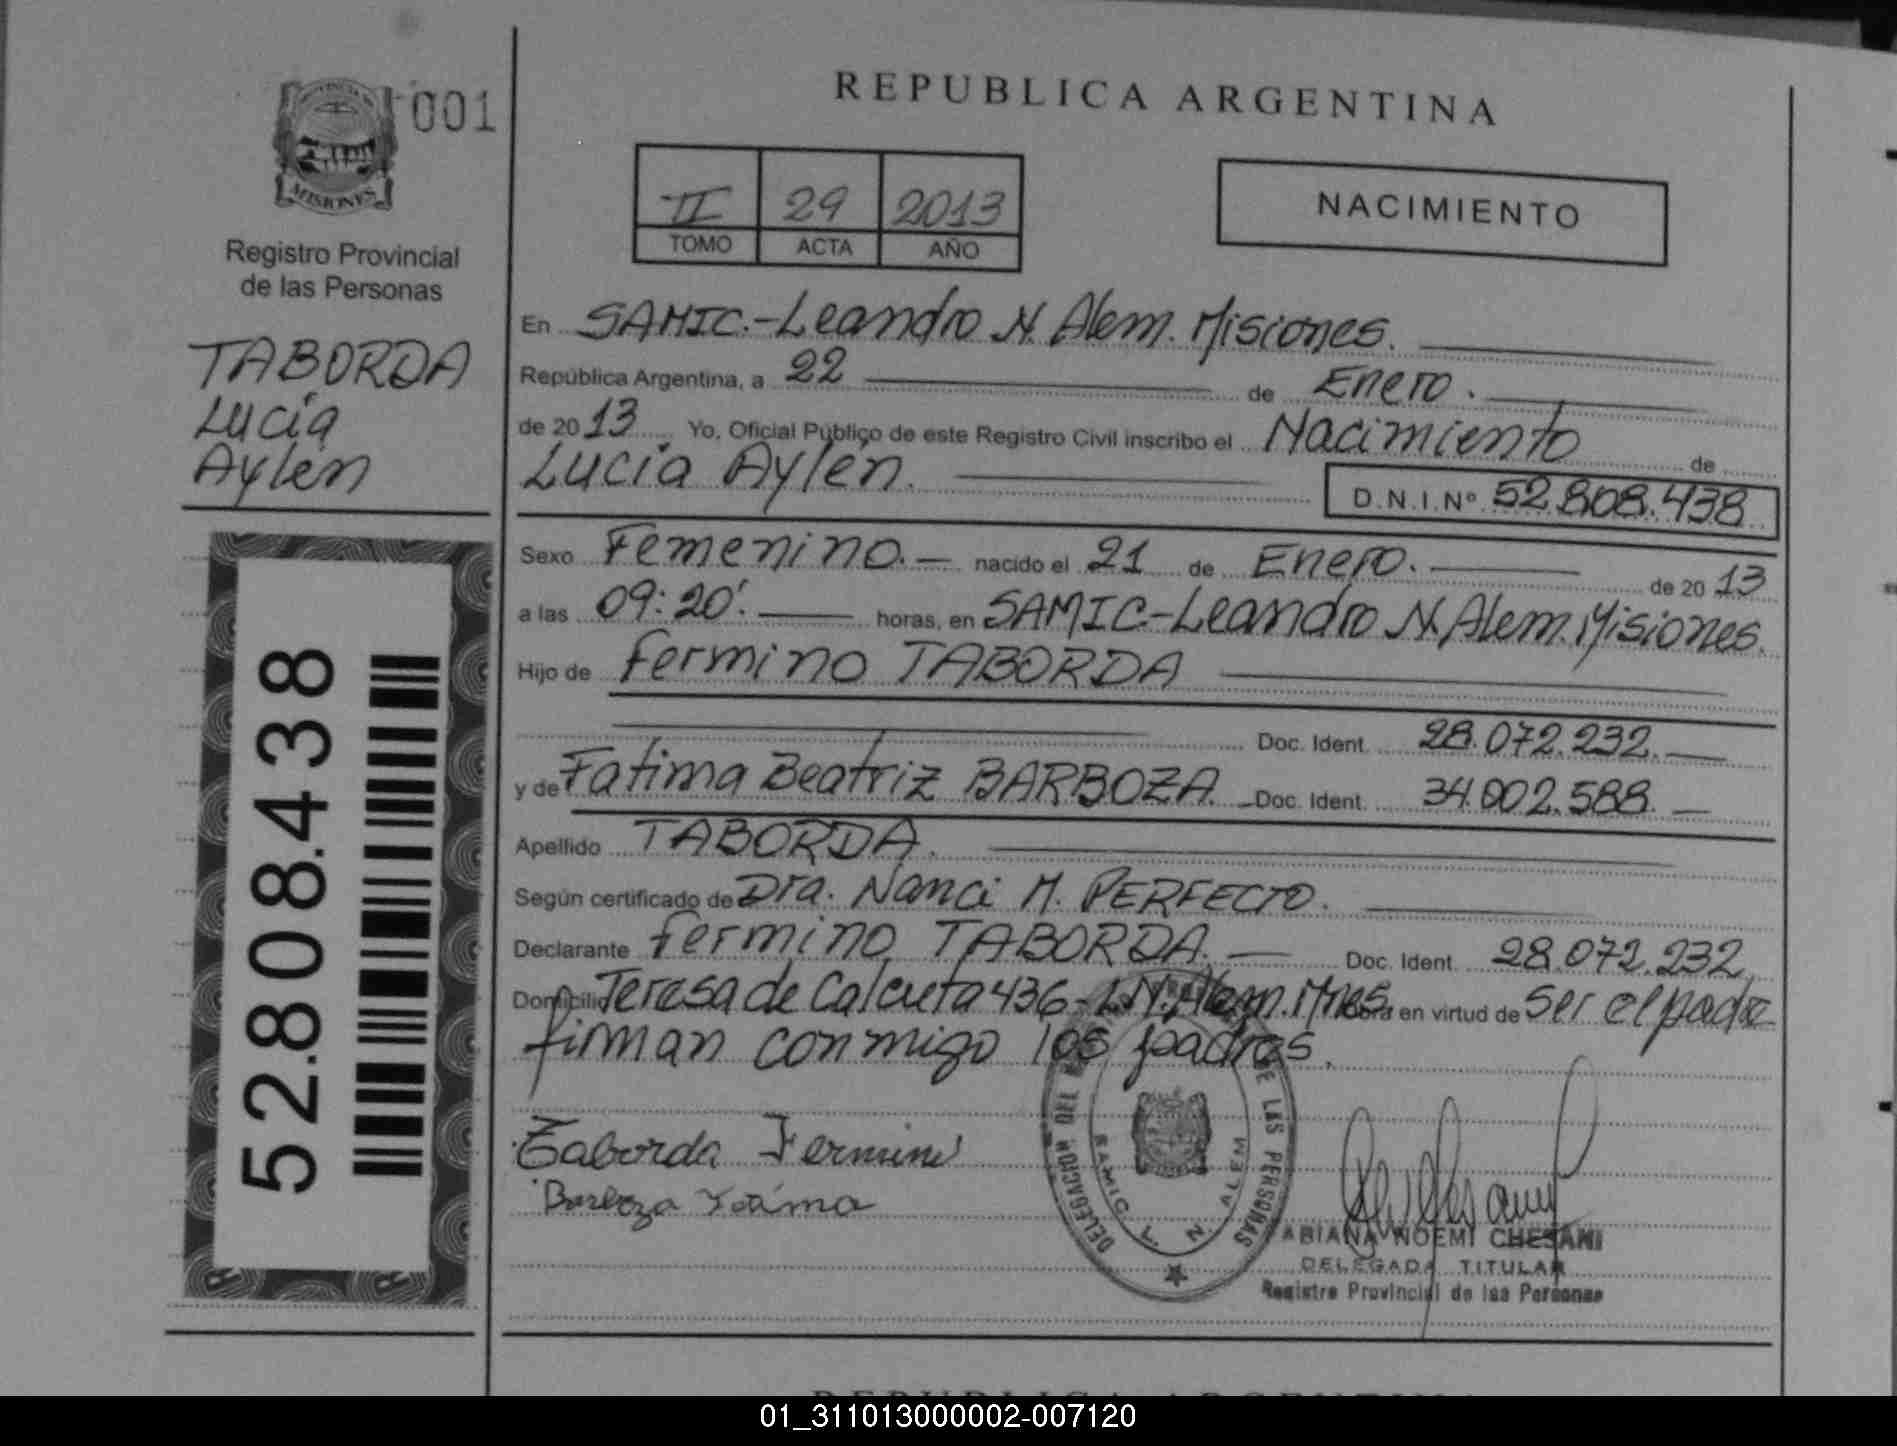 001
PROVINCIA DE
MISIONES
Registro Provincial
de las Personas
TABORDA
Lucía
Aylén
52.808.438
REPUBLICA ARGENTINA
II 29 2013
TOMO ACTA AÑO
NACIMIENTO
En SAMIC.-Leandro N. Alem. Misiones.
República Argentina, a 22 de Enero.
de 2013 Yo, Oficial Público de este Registro Civil inscribo el Nacimiento de
Lucía Aylén. D.N.I.Nº 52.808.438
Sexo Femenino.- nacido el 21 de Enero. de 2013
a las 09:20'. horas, en SAMIC-Leandro N. Alem. Misiones.
Hijo de Fermino TABORDA
Doc. Ident. 28.072.232.
y de Fatima Beatriz BARBOZA. Doc. Ident. 34.002.588.
Apellido TABORDA.
Según certificado de Dra. Nanci M. PERFECTO.
Declarante Fermino TABORDA. Doc. Ident. 28.072.232
Domicilio Teresa de Calcuta 436-L.N.Alem.Mnes. en virtud de Ser el padre
firman conmigo los padres.
Taborda Fermino
Barboza Fátima
DELEGACION DEL DE LAS PERSONAS
SAMIC L. N. ALEM
FABIANA NOEMI CHESANI
DELEGADA TITULAR
Registro Provincial de las Personas
REPUBLICA ARGENTINA
01_311013000002-007120